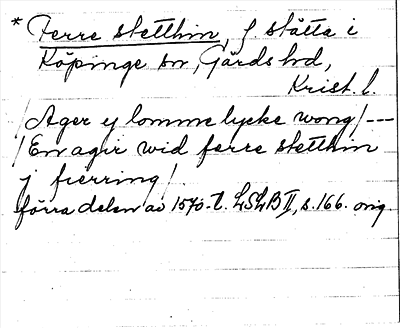 * Ferre stetthin, f. stätta i
Köpinge sn, Gärds hd,
Krist. l.
/Ager y lomme lycke wong/---
/En ager wid ferre stetthin
j fierring/.
förra delen av 1570-t. LSLB II, s. 166. orig.